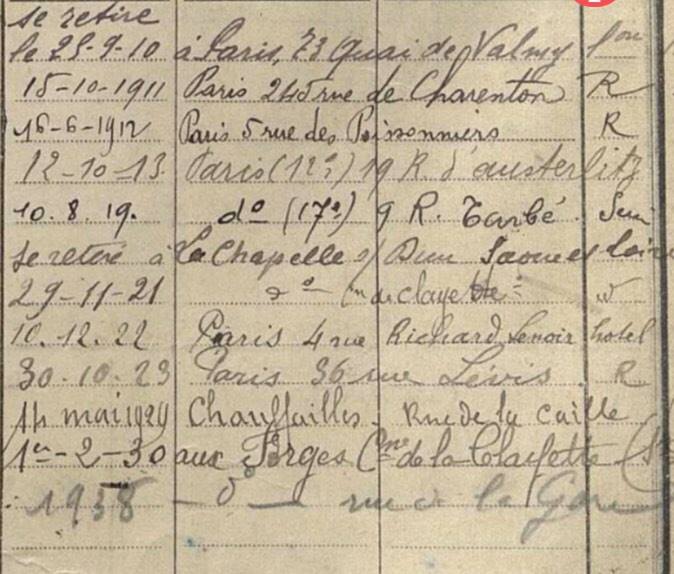 se retire
le 25-9-10 à Paris, 73 Quai de Valmy
15-10-1911 Paris 245 rue de Charenton R
16-6-1912 Paris 5 rue des Poissonniers R
12-10-13 Paris (12e) 19 R. d'austerlitz
10.8.19. do (17e) 9 R. Tarbé.
se retire à La Chapelle s/ Dun Saone et loire
29-11-21 do
10.12.22 Paris 4 rue Richard Lenoir hotel
30.10.23 Paris 36 rue Lévis. R
14 mai 1929 Chauffailles. Rue de la Caille
1er-2-30 aux Forges Cne de la Clayette
1938 - do - rue de la Gare